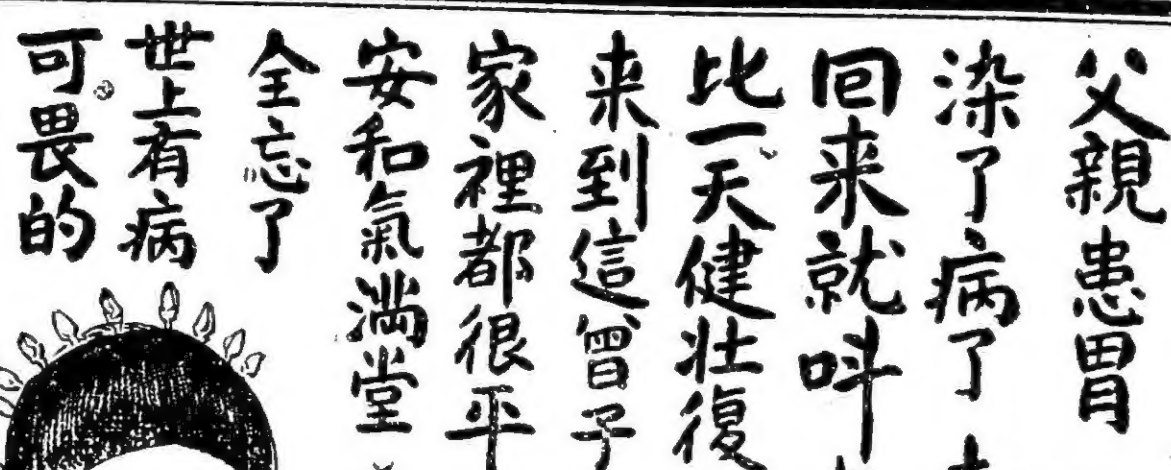 父親患胃
染了病了
回来就呌
比一天健壮復
来到這曾子
家裡都很平
安和氣満堂
全忘了
世上有病
可畏的